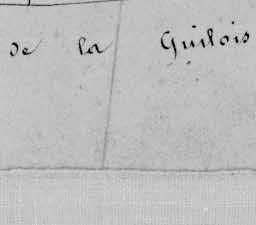 de la Guilois